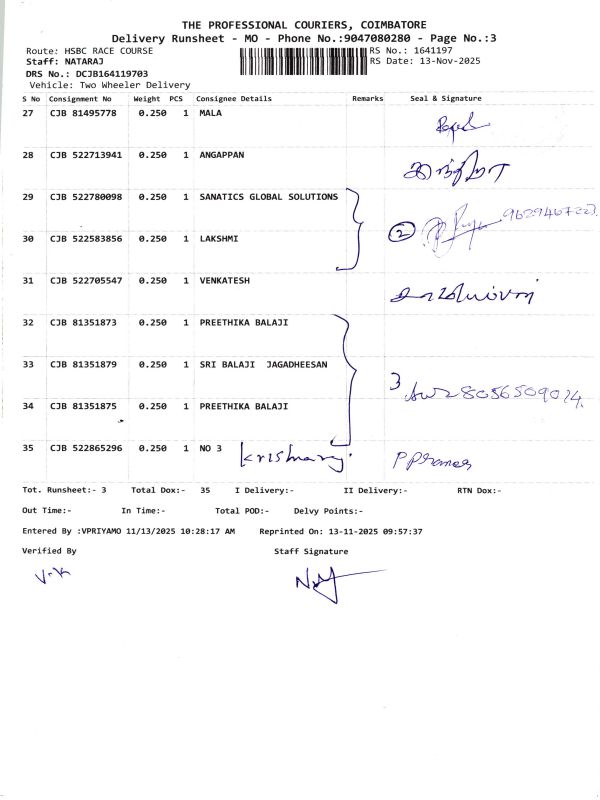 THE PROFESSIONAL COURIERS, COIMBATORE
Delivery Runsheet - MO - Phone No.:9047080280 - Page No.:3
Route: HSBC RACE COURSE RS No.: 1641197
Staff: NATARAJ RS Date: 13-Nov-2025
DRS No.: DCJB164119703
Vehicle: Two Wheeler Delivery
S No Consignment No Weight PCS Consignee Details Remarks Seal & Signature
27 CJB 81495778 0.250 1 MALA
28 CJB 522713941 0.250 1 ANGAPPAN
29 CJB 522780098 0.250 1 SANATICS GLOBAL SOLUTIONS
2
30 CJB 522583856 0.250 1 LAKSHMI
31 CJB 522705547 0.250 1 VENKATESH
32 CJB 81351873 0.250 1 PREETHIKA BALAJI
33 CJB 81351879 0.250 1 SRI BALAJI JAGADHEESAN
3 8056509024.
34 CJB 81351875 0.250 1 PREETHIKA BALAJI
35 CJB 522865296 0.250 1 NO 3
Tot. Runsheet:- 3 Total Dox:- 35 I Delivery:- II Delivery:- RTN Dox:-
Out Time:- In Time:- Total POD:- Delvy Points:-
Entered By :VPRIYAMO 11/13/2025 10:28:17 AM Reprinted On: 13-11-2025 09:57:37
Verified By Staff Signature